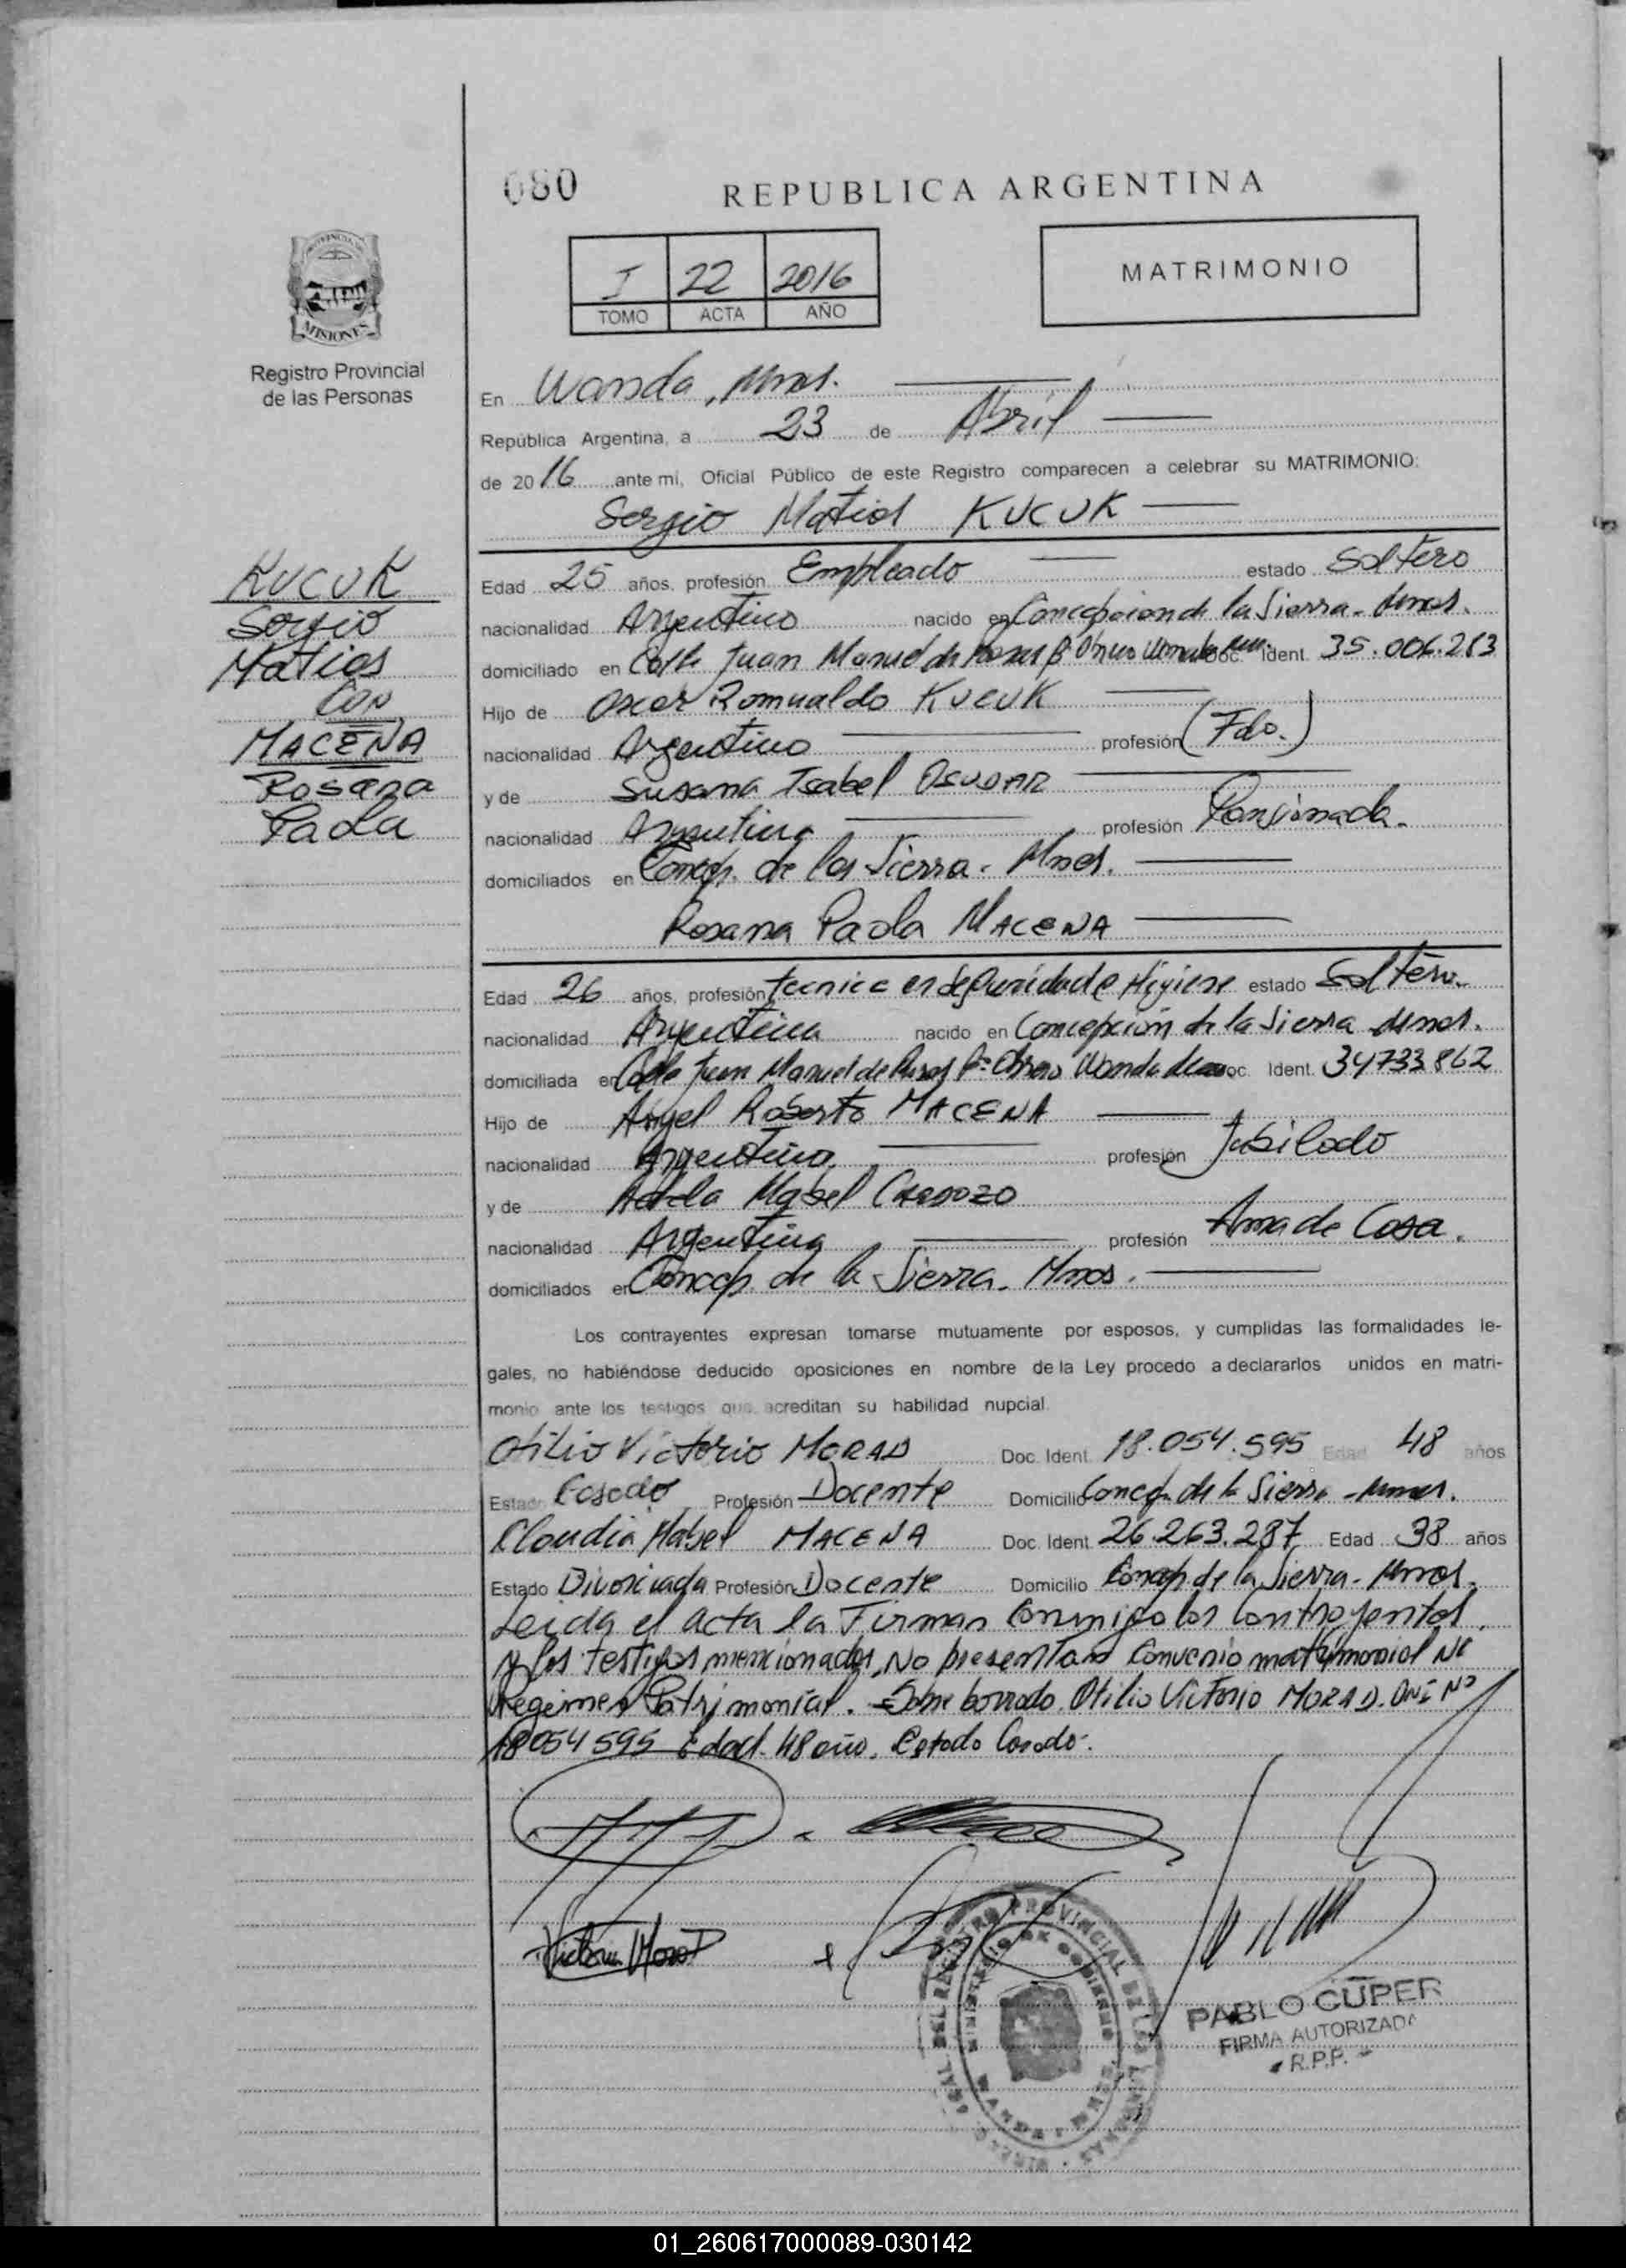 080
REPUBLICA ARGENTINA
I 22 2016
TOMO ACTA AÑO
MATRIMONIO
MISIONES
Registro Provincial
de las Personas
En Wanda, Mnes.
República Argentina, a 23 de Abril
de 2016 ante mi, Oficial Público de este Registro comparecen a celebrar su MATRIMONIO:
Sergio Matias KUCUK
KUCUK
Sergio
Matias
Con
MACENA
Rosana
Paola
Edad 25 años, profesión Empleado estado Soltero
nacionalidad Argentino nacido en Concepcion de la Sierra - Mnes.
domiciliado en Calle Juan Manuel de Rosas Bº Obrero Wanda Mnes. Doc. Ident. 35.006.213
Hijo de Oscar Romualdo KUCUK
nacionalidad Argentino profesión (Fdo.)
y de Susana Isabel
nacionalidad Argentina profesión Pensionada.
domiciliados en Concep. de la Sierra - Mnes.
Rosana Paola MACENA
Edad 26 años, profesión tecnica en Seguridad e Higiene estado Soltera.
nacionalidad Argentina nacido en Concepción de la Sierra Mnes.
domiciliada en Calle Juan Manuel de Rosas Bº Obrero Wanda Mnes Doc. Ident. 34733862
Hijo de Angel Roberto MACENA
nacionalidad Argentino profesión Jubilado
y de Adela Mabel CARDOZO
nacionalidad Argentina profesión Ama de Casa.
domiciliados en Concep. de la Sierra - Mnes.
Los contrayentes expresan tomarse mutuamente por esposos, y cumplidas las formalidades le-
gales, no habiéndose deducido oposiciones en nombre de la Ley procedo a declararlos unidos en matri-
monio ante los testigos que acreditan su habilidad nupcial.
Otilio Victorio MORAD Doc. Ident. 18.054.595 Edad 48 años
Estado Casado Profesión Docente Domicilio Concep. de la Sierra - Mnes.
Claudia Mabel MACENA Doc. Ident. 26.263.287 Edad 38 años
Estado Divorciada Profesión Docente Domicilio Concep de la Sierra - Mnes.
Leida el acta la Firman conmigo los Contrayentes
y los testigos mencionados, No presentan Convenio matrimonial Ni
Regimen Patrimonial. - Sobre borrado. Otilio Victorio MORAD. DNI Nº
18054595 Edad. 48 año. Estado Casado-.
Victorio Morad
PABLO CÚPER
FIRMA AUTORIZADA
R.P.P.
01_260617000089-030142